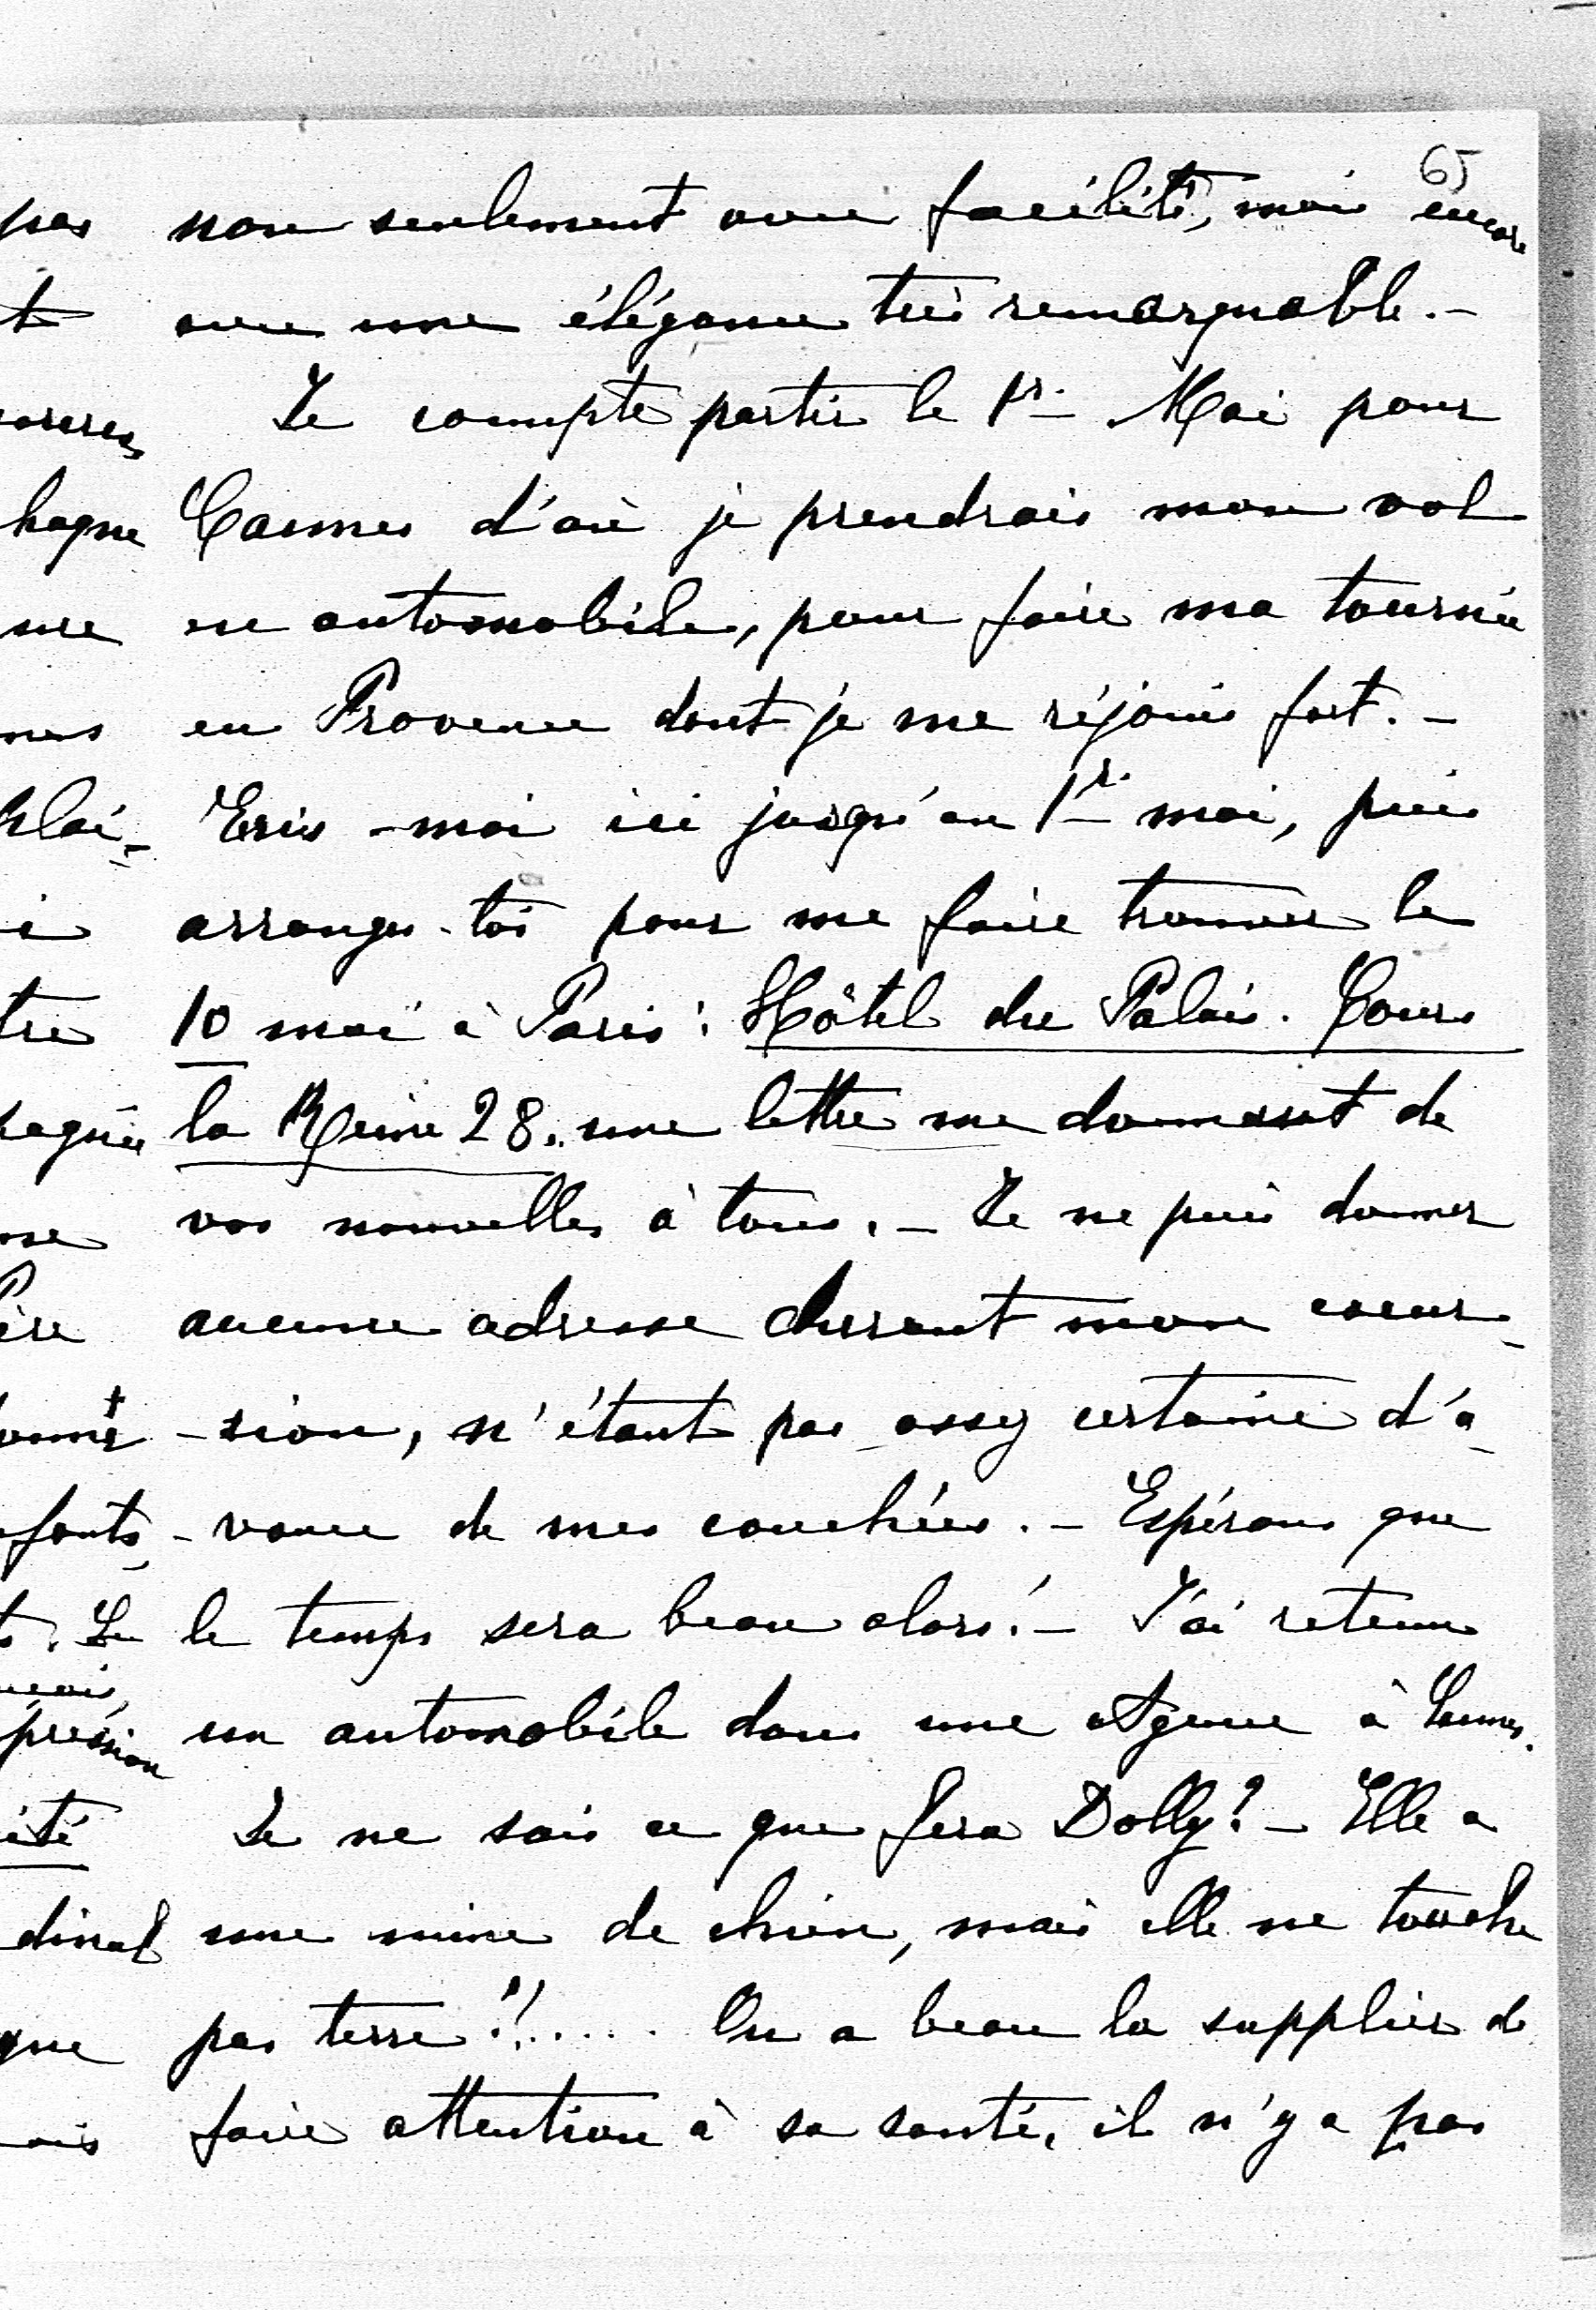 65
non seulement avec facilité, mais encore
avec une élégance très remarquable. -
Je compte partir le 1r. Mai pour
Cannes d'où je prendrais mon vol
en automobile, pour faire ma tournée
en Provence dont je me réjouis fort. -
Ecris-moi ici jusqu'au 1r. mai, puis
arranges-toi pour me faire trouver le
10 mai à Paris: Hôtel du Palais. Cours
la Reine 28. une lettre me donnant de
vos nouvelles à tous. - Je ne puis donner
aucune adresse durant mon excur-
-sion, n'étant pas assez certaine d'a-
-vance de mes couchées. - Espérons que
le temps sera beau alors! - J'ai retenu
un automobile dans une Agence à Cannes.
Je ne sais ce que fera Dolly? - Elle a
une mine de chien, mais elle ne touche
pas terre?!..... On a beau la supplier de
faire attention à sa santé, il n'y a pas